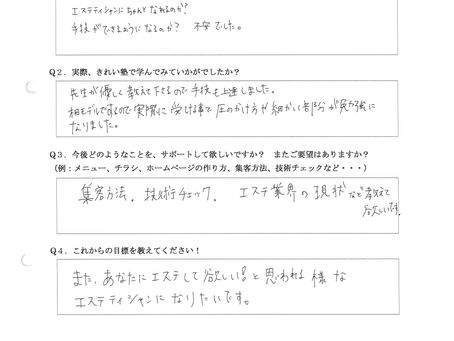 エステティシャンにちゃんとなれるのか？
手技ができるようになるのか？ 不安でした。
Q２．実際、きれい塾で学んでみていかがでしたか？
先生が優しく教えて下さるので手技も上達しました。
相モデルですので実際に受ける事で圧のかけ方や細かい部分が勉強に
なりました。
Q３．今後どのようなことを、サポートして欲しいですか？ またご要望はありますか？
（例：メニュー、チラシ、ホームページの作り方、集客方法、技術チェックなど・・・）
集客方法．技術チェック． エステ業界の現状など教えて
欲しいです。
Q４．これからの目標を教えてください！
また、あなたにエステして欲しい！と思われる様な
エステティシャンになりたいです。